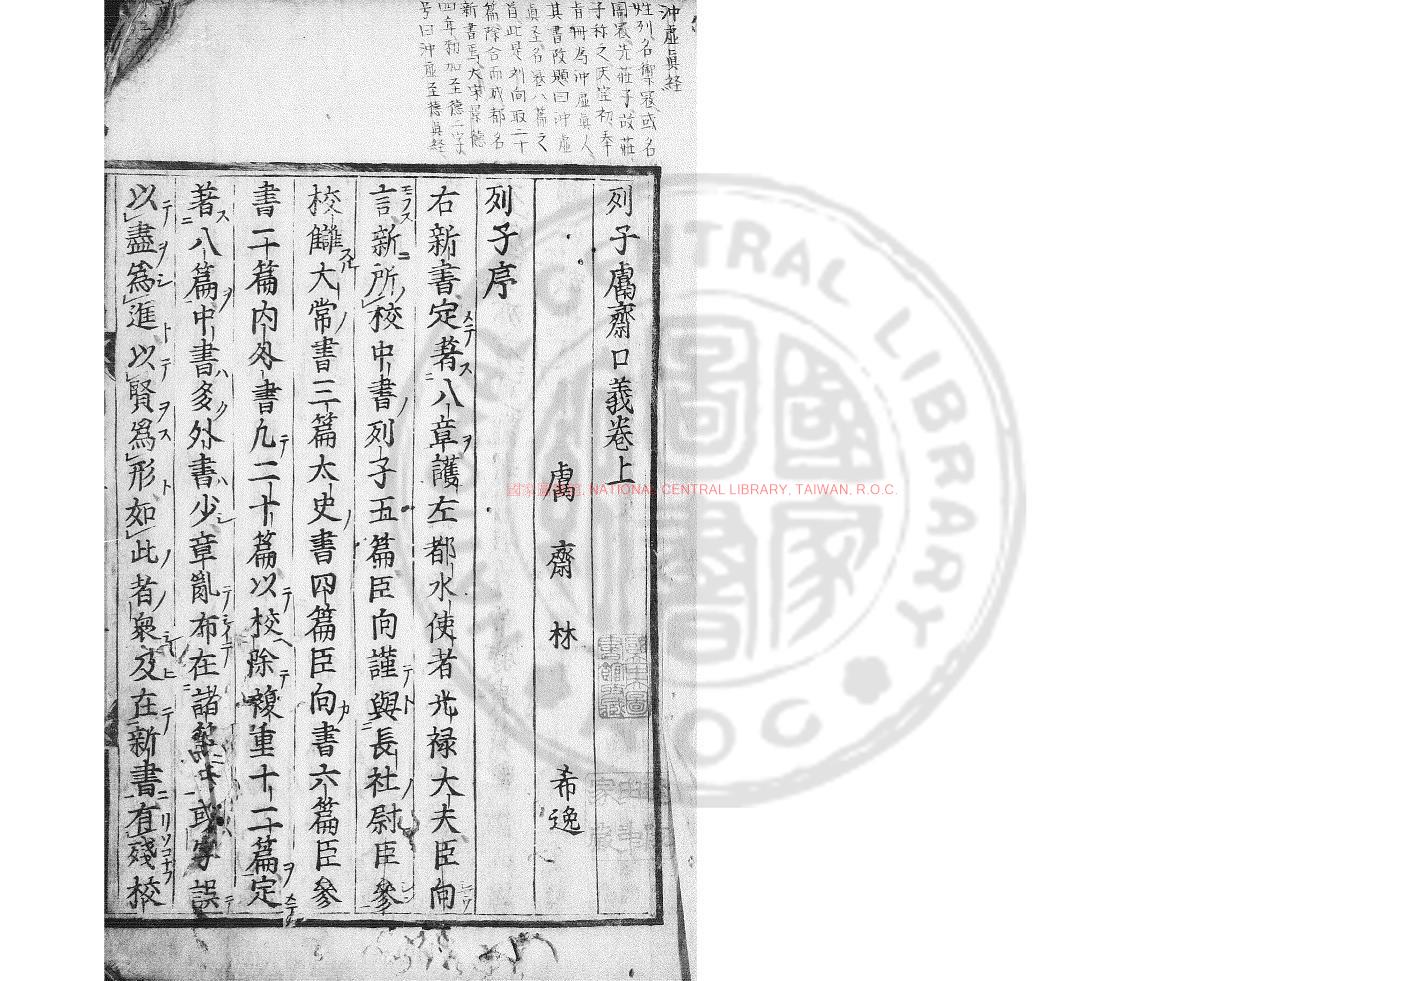 沖虛眞経
姓列名禦寇或名
圄寇先莊子故莊
子称之天宝初奉
旨冊為沖虛眞人
其書改題曰沖虛
眞圣名卷八篇之
首此是刘向取二十
篇除合而成都名
新書焉大宋景德
四年勅加至德二字
号曰沖虛至德眞経
列子鬳齋口義卷上
鬳齋林希逸
列子序
右新書定著八章護左都水使者光禄大夫臣向
言新所校中書列子五篇臣向謹與長社尉臣參
校讎大常書三篇太史書四篇臣向書六篇臣參
書二十篇内外書凢二十篇以校除複重十二篇定
著八篇中書多外書少章亂布在諸篇中或字誤
以盡為進以賢為形如此者衆及在新書有殘校
國家圖書館, NATIONAL CENTRAL LIBRARY, TAIWAN, R.O.C.
NATIONAL CENTRAL LIBRARY